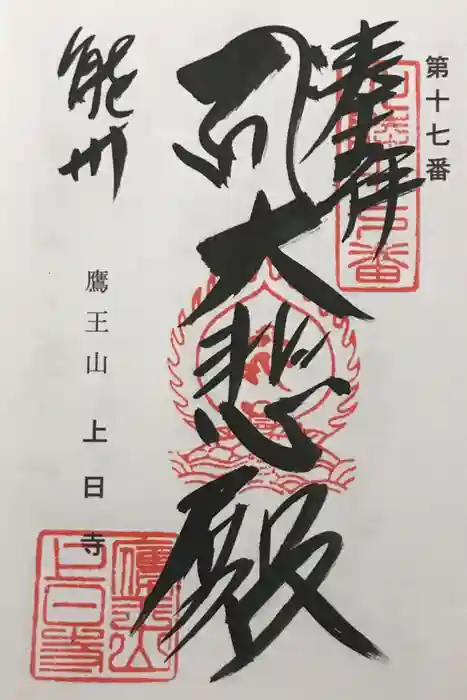 第十七番
奉拝
大悲殿
能州
鷹王山 上日寺
上日寺